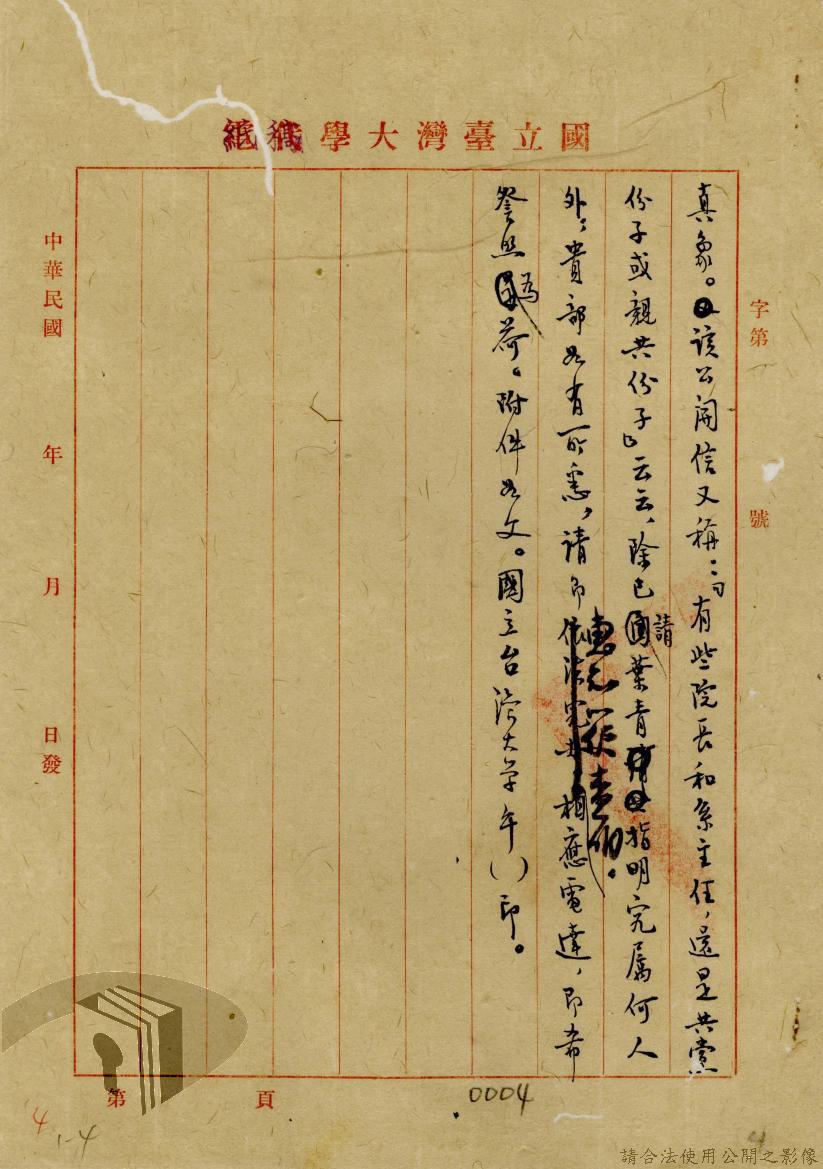 國立臺灣大學稿紙
字第 號
真象。該公開信又稱：「有些院長和系主任，還是共黨
份子或親共份子」云云，除已請葉青指明究屬何人
外，貴部如有所悉，請即惠示以憑查明。相應電達，即希
詧照為荷。附件如文。國立台灣大學午（）印。
中華民國 年 月 日發
第 頁
0004
4
1-4
4
請合法使用公開之影像